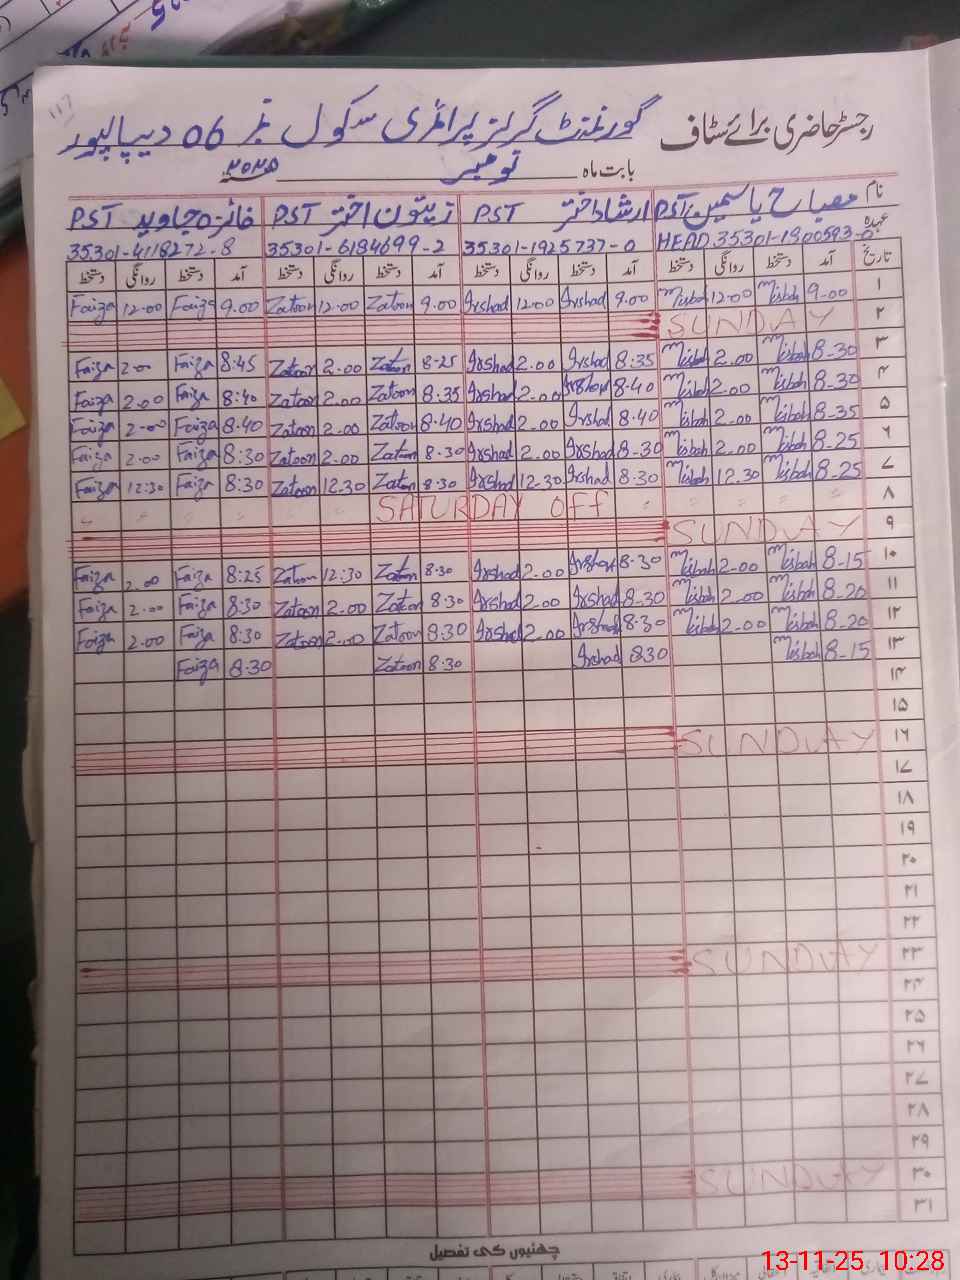 117
رجسٹر حاضری برائے سٹاف گورنمنٹ گرلز پرائمری سکول نمبر 06 دیپالپور
بابت ماہ نومبر ۲۰۲۵
نام مصباح یاسمین PST ارشاد اختر PST زیتون اختر PST فائزہ جاوید PST
عہدہ HEAD 35301-1900593-0 35301-1925737-0 35301-6184699-2 35301-4118272-8
تاریخ آمد دستخط روانگی دستخط آمد دستخط روانگی دستخط آمد دستخط روانگی دستخط آمد دستخط روانگی دستخط
۱ 9-00 Misbah 12-00 Misbah 9.00 Irshad 12.00 Irshad 9.00 Zatoon 12.00 Zatoon 9.00 Faiza 12.00 Faiza
۲ SUNDAY
۳ 8-30 Misbah 2.00 Misbah 8:35 Irshad 2.00 Irshad 8-25 Zatoon 2.00 Zatoon 8:45 Faiza 2.00 Faiza
۴ 8-30 Misbah 2.00 Misbah 8-40 Irshad 2.00 Irshad 8.35 Zatoon 2.00 Zatoon 8:40 Faiza 2.00 Faiza
۵ 8-35 Misbah 2.00 Misbah 8.40 Irshad 2.00 Irshad 8.40 Zatoon 2.00 Zatoon 8.40 Faiza 2.00 Faiza
۶ 8-25 Misbah 2.00 Misbah 8-30 Irshad 2.00 Irshad 8.30 Zatoon 2.00 Zatoon 8:30 Faiza 2.00 Faiza
۷ 8-25 Misbah 12.30 Misbah 8.30 Irshad 12.30 Irshad 8:30 Zatoon 12.30 Zatoon 8:30 Faiza 12:30 Faiza
۸ SATURDAY OFF
۹ SUNDAY
۱۰ 8-15 Misbah 2-00 Misbah 8-30 Irshad 2.00 Irshad 8.30 Zatoon 12:30 Zatoon 8:25 Faiza 2.00 Faiza
۱۱ 8-20 Misbah 2.00 Misbah 8-30 Irshad 2.00 Irshad 8.30 Zatoon 2.00 Zatoon 8:30 Faiza 2.00 Faiza
۱۲ 8-20 Misbah 2-00 Misbah 8.30 Irshad 2.00 Irshad 8.30 Zatoon 2.00 Zatoon 8:30 Faiza 2.00 Faiza
۱۳ 8-15 Misbah 8.30 Irshad 8.30 Zatoon 8.30 Faiza
۱۴
۱۵
۱۶ SUNDAY
۱۷
۱۸
۱۹
۲۰
۲۱
۲۲
۲۳ SUNDAY
۲۴
۲۵
۲۶
۲۷
۲۸
۲۹
۳۰ SUNDAY
۳۱
چھٹیوں کی تفصیل
13-11-25 10:28